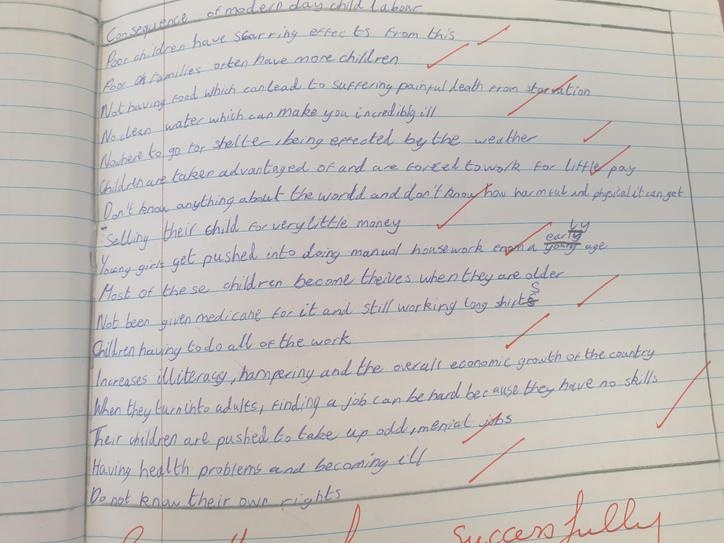 Consequence of modern day child labour
Poor children have starring effects from this
Poor families often have more children
Not having food which can lead to suffering painful death from starvation
No clean water which can make you incredibly ill
Nowhere to go for shelter, being effected by the weather
Children are taken advantaged of and are forced to work for little pay
Don't know anything about the world and don't know how harmful and physical it can get
- Selling their child for very little money
Young girls get pushed into doing manual housework from a early age
Most of these children become theives when they are older
Not been given medicane for it and still working long shifts
Children having to do all of the work
Increases illiteracy, hampering and the overall economic growth of the country
When they turn into adults, finding a job can be hard because they have no skills
Their children are pushed to take up odd, menial jobs
Having health problems and becoming ill
Do not know their own rights
successfully